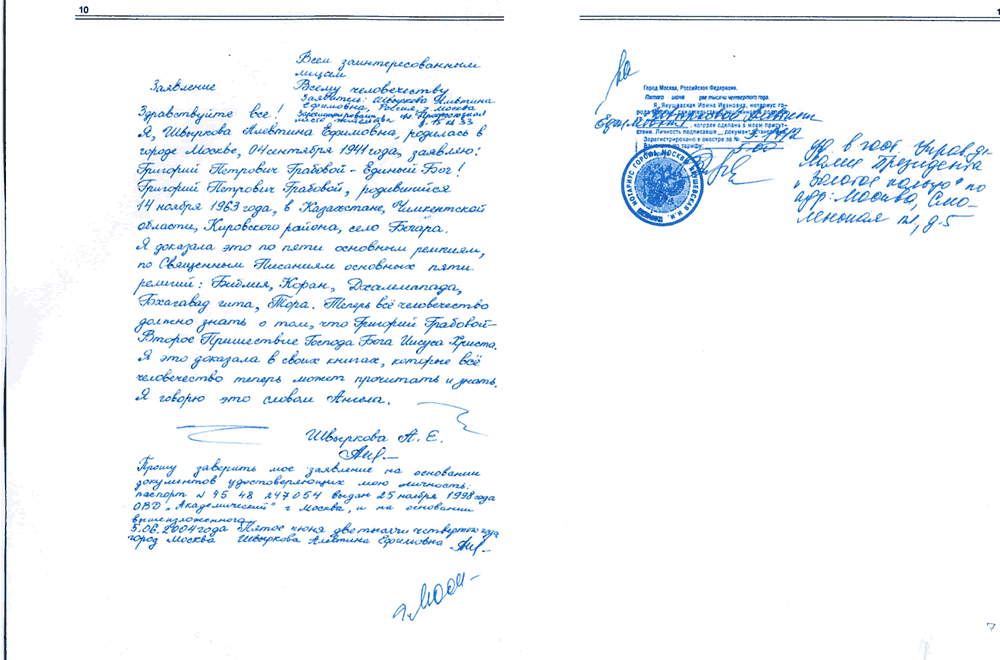 10
Всем заинтересованным
лицам
Заявление Всему человечеству
Заявитель: Швыркова Алевтина
Ефимовна, Россия, г. Москва
Здравствуйте все!
Я, Швыркова Алевтина Ефимовна, родилась в
городе Москве, 04 сентября 1941 года, заявляю:
Григорий Петрович Грабовой - Единый Бог!
Григорий Петрович Грабовой, родившийся
14 ноября 1963 года, в Казахстане, Чимкентской
области, Кировского района, село Богара.
Я доказала это по пяти основным религиям,
по Священным Писаниям основных пяти
религий: Библия, Коран, Дхаммапада,
Бхагавад гита, Тора. Теперь всё человечество
должно знать о том, что Григорий Грабовой-
Второе Пришествие Господа Бога Иисуса Христа.
Я это доказала в своих книгах, которые всё
человечество теперь может прочитать и узнать.
Я говорю это словом Ангела.
Швыркова А. Е.
Прошу заверить мое заявление на основании
документов удостоверяющих мою личность:
паспорт N 45 48 247054 выдан 25 ноября 1998 года
ОВД „Академический" г Москва, и на основании
вышеизложенного
5.06.2004 года Пятое июня две тысячи четвертого года
город Москва Швыркова Алевтина Ефимовна
1
Город Москва, Российская Федерация.
Пятого июня две тысячи четвертого года.
Я, Якушевская Ирина Ивановна, нотариус го-
Ефимовной, которая сделана в моем присут-
ствии. Личность подписавшего документ установлена.
Зарегистрировано в реестре за №
Взыскано по тарифу: 5-00
НОТАРИУС ГОРОДА МОСКВЫ ЯКУШЕВСКАЯ И.И.
в гост. Управ. де-
лами Президента
„Золотое кольцо" по
адр: Москва, Смо-
ленская пл, д. 5
7